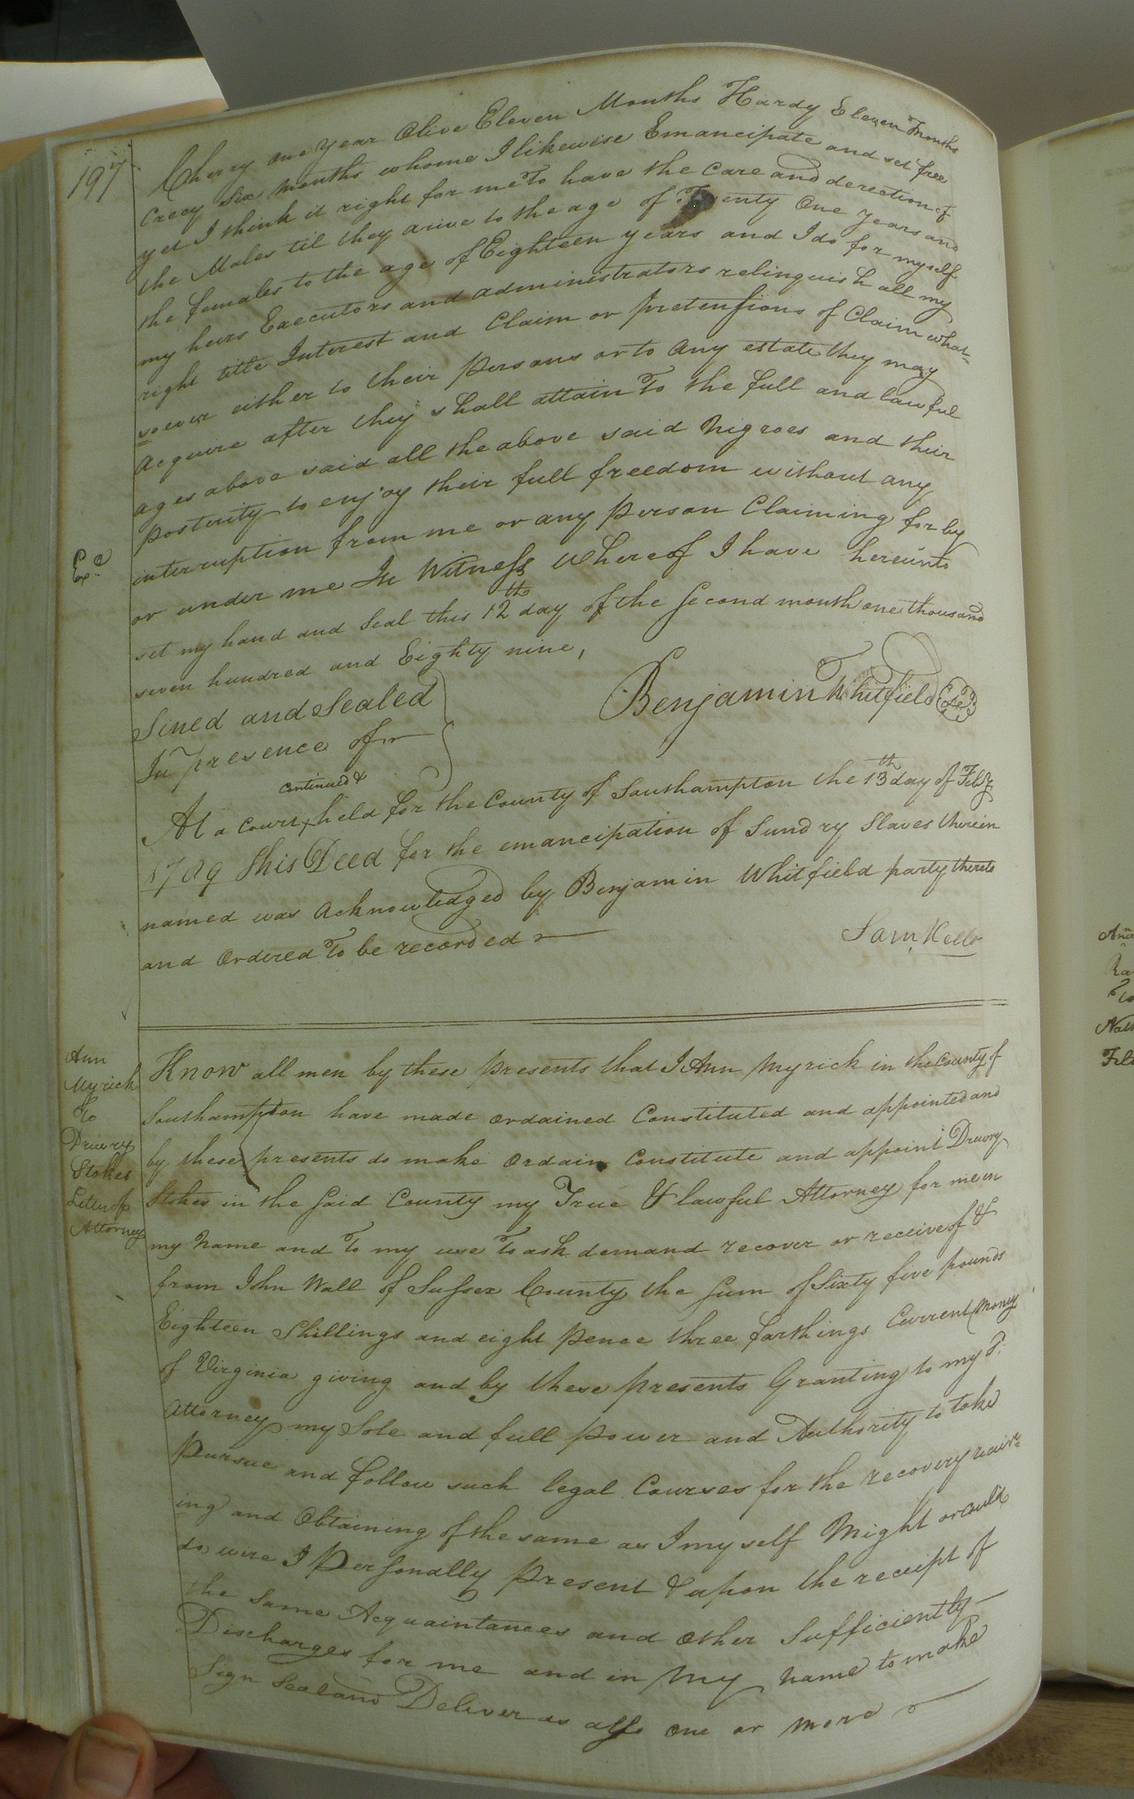 197
Cherry one year Olive Eleven Months Hardy Eleven Months
Creecy Six Months whome I likewise Emancipate and set free
yet I think it right for me To have the Care and derection of
the Males til they arive to the age of Twenty One years and
the females to the age of Eighteen years and I do for myself
my heirs Executors and administrators relinquish all my
right title Interest and Claim or pretensions of Claim what-
soever either to their persons or to any estate they may
Acquire after they shall attain To the full and lawful
ages above said all the above said Nigroes and their
posterity to enjoy their full freedom without any
Ex.d
interruption from me or any person Claiming for by
or under me In Witness Whereof I have hereunto
set my hand and Seal this 12th day of the Second month one thousand
seven hundred and Eighty nine,
Sined and Sealed
Benjamin Whitfield
In presence of
continued &
At a Court held for the County of Southampton the 13th day of Feb.y
1789 This Deed for the emancipation of Sundry Slaves therein
named was Acknowledged by Benjamin Whitfield party thereto
and Ordered To be recorded
Sam. Kello
Ann
Myrick
To
Drewry
Stokes
Letter of
Attorney
Know all men by these presents that I Ann Myrick in the County of
Southampton have made ordained Constituted and appointed and
by these presents do make ordain Constitute and appoint Drewry
Stokes in the said County my True & lawful Attorney for me in
my Name and To my use To ask demand recover or receive of &
from John Wall of Sussex County the sum of Sixty five pounds
Eighteen Shillings and eight pence three farthings Current Money
of Virginia giving and by these presents Granting to my S.
Attorney my Sole and full power and Authority to take
Pursue and follow such legal Courses for the recovery
ing and Obtaining of the same as I my self Might or could
do were I Personally Present & upon the receipt of
the Same Acquaintances and other Sufficiently
Discharges for me and in my name to make
Sign Seal and Deliver as also one or more